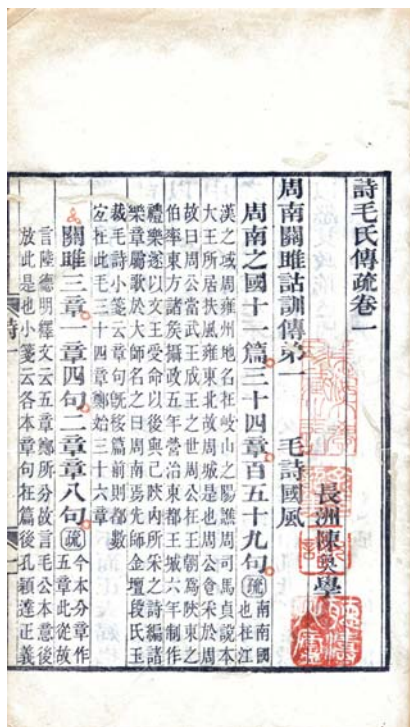 詩毛氏傳疏卷一
長洲陳奐學
周南關雎詁訓傳弟一　毛詩國風
周南之國十一篇三十四章百五十九句 疏 南南國
也在江
漢之域周雍州地名在岐山之陽譙周司馬貞說本
大王所居扶風雍東北故周城是也周公食采於周
故曰周公當武王成王之世周公在王朝爲陝東之
伯率東方諸矦攝政五年營治東都王城六年制作
禮樂遂以文王受命以後與己陝內所采之詩編諸
樂章屬歌於大師名之曰周南焉先師金壇段氏玉
裁毛詩小箋云章句旣移篇前則都數
宐在此毛三十四章鄭始三十六章
關雎三章一章四句二章章八句 疏 今本分章作
五章此從故
言陸德明釋文云五章鄭所分故言毛公本意後
放此是也小箋云各本章句在篇後孔穎達正義